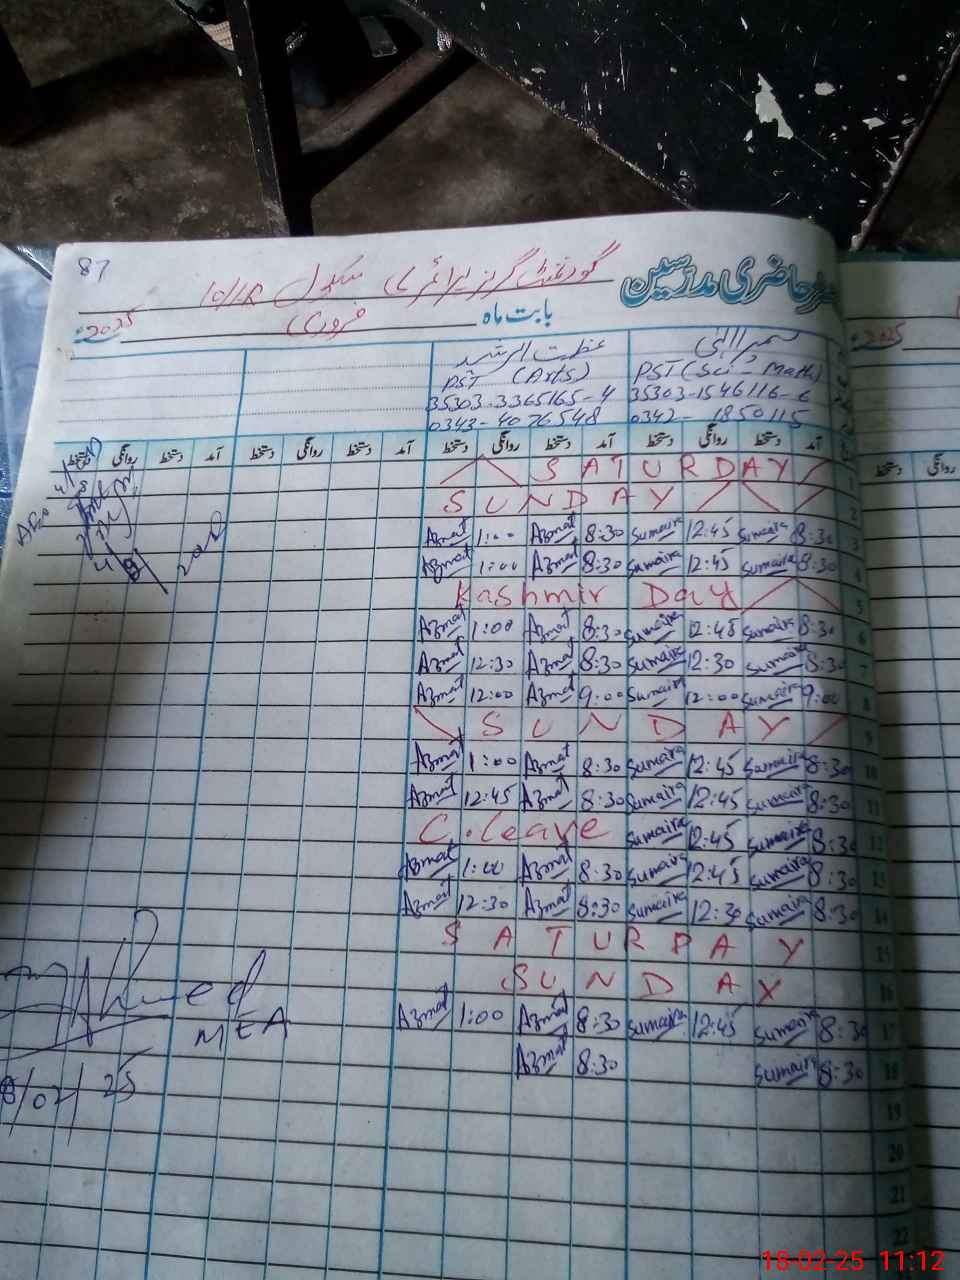 87
گورنمنٹ گرلز پرائمری سکول 10/1R
حاضری مدرسین
بابت ماہ فروری 2025
PST (Arts) PST (Sci - Math)
35303-3365165-4 35303-1546116-6
0343-4076548 0342-1850115
دستخط روانگی دستخط آمد دستخط روانگی دستخط آمد دستخط روانگی دستخط آمد دستخط روانگی دستخط آمد
SATURDAY 1
SUNDAY 2
Azmat 1:00 Azmat 8:30 Sumaira 12:45 Sumaira 8:30 3
Azmat 1:00 Azmat 8:30 Sumaira 12:45 Sumaira 8:30 4
Kashmir Day 5
Azmat 1:00 Azmat 8:30 Sumaira 12:45 Sumaira 8:30 6
Azmat 12:30 Azmat 8:30 Sumaira 12:30 Sumaira 8:30 7
Azmat 12:00 Azmat 9:00 Sumaira 12:00 Sumaira 9:00 8
SUNDAY 9
Azmat 1:00 Azmat 8:30 Sumaira 12:45 Sumaira 8:30 10
Azmat 12:45 Azmat 8:30 Sumaira 12:45 Sumaira 8:30 11
C.leave Sumaira 12:45 Sumaira 8:30 12
Azmat 1:00 Azmat 8:30 Sumaira 12:45 Sumaira 8:30 13
Azmat 12:30 Azmat 8:30 Sumaira 12:30 Sumaira 8:30 14
SATURDAY 15
SUNDAY 16
Azmat 1:00 Azmat 8:30 Sumaira 12:45 Sumaira 8:30 17
Azmat 8:30 Sumaira 8:30 18
19
20
21
22
Ahmed
MEA
8/02/25
2025
دستخط روانگی
18-02-25 11:12